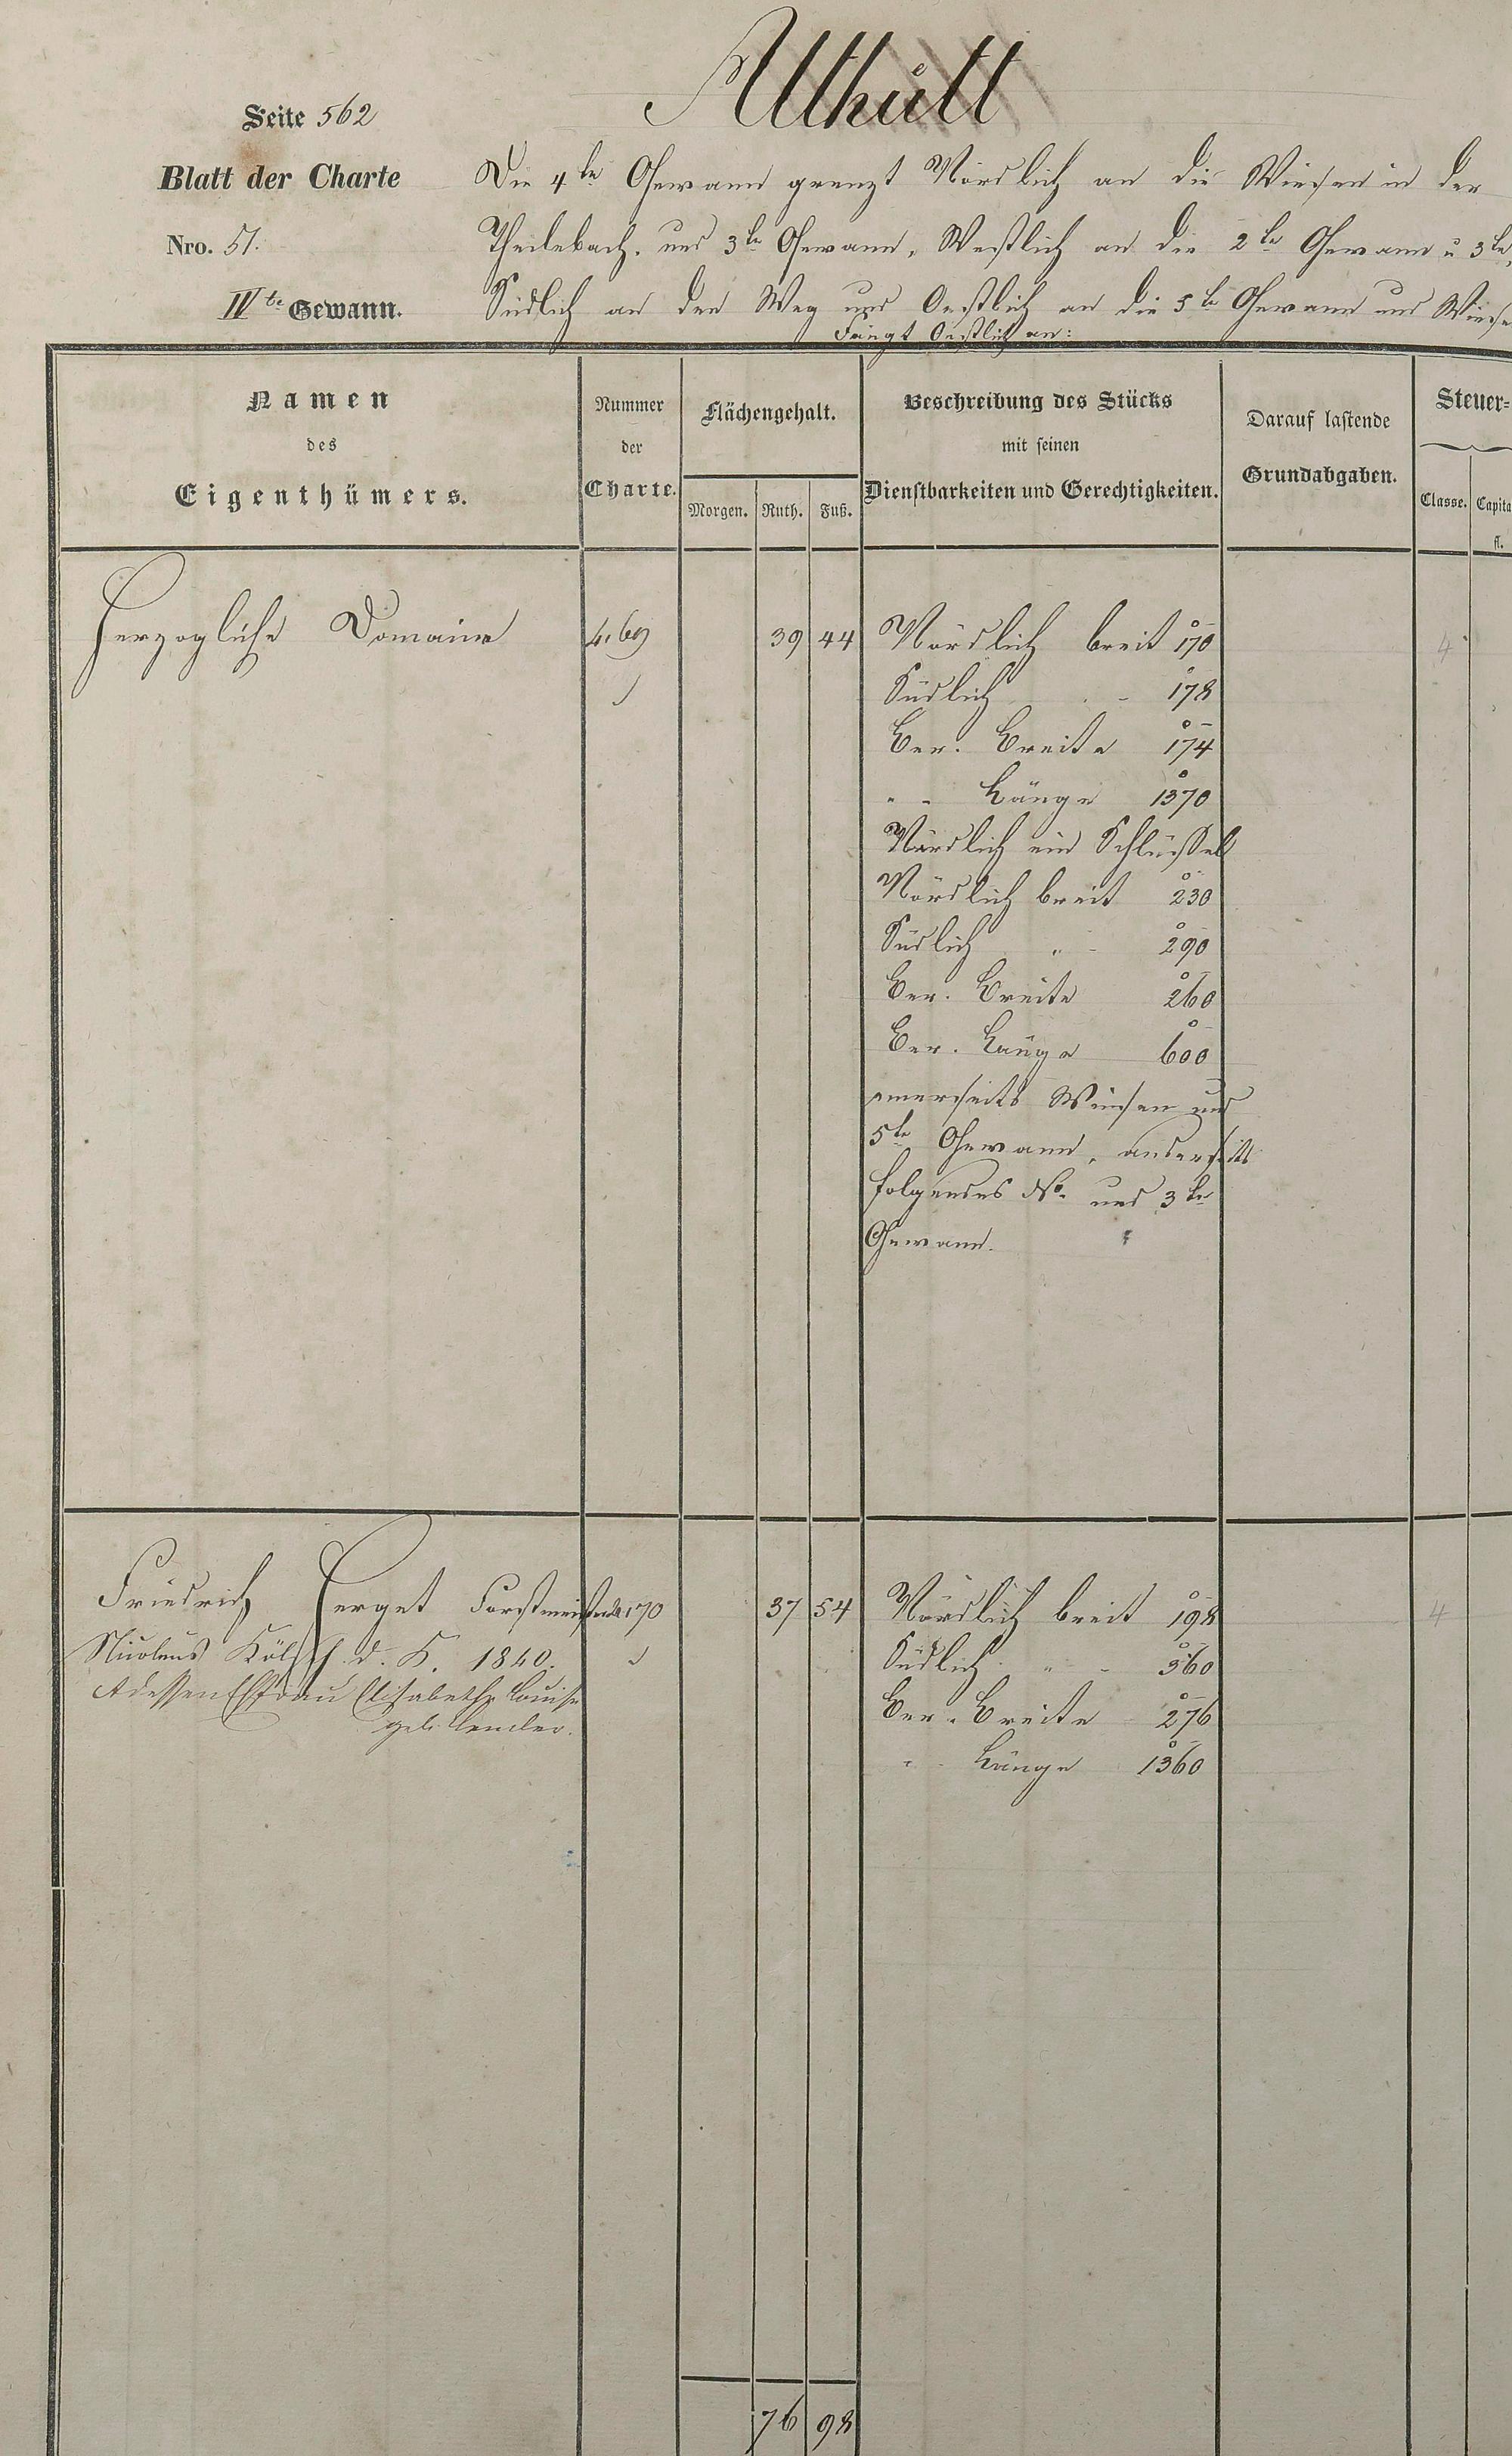 Althütt
Seite 562
Blatt der Charte
Nro. 51.
IVte Gewann.
Die 4te Gewann grenzt Nördlich an die Wiesen in der
Theilebach, und 3te Gewann, Westlich an die 2te Gewann u 3te,
Südlich an den Weg und Oestlich an die 5te Gewann und Wiese
Fängt Oestlich an:
Namen
des
Eigenthümers.
Nummer
der
Charte.
Flächengehalt.
Morgen. Ruth. Fuß.
Beschreibung des Stücks
mit seinen
Dienstbarkeiten und Gerechtigkeiten.
Darauf lastende
Grundabgaben.
Steuer=
Classe. Capita
fl.
Herzogliche Domaine 4169 39 44 Nördlich breit 170 4
Südlich " - 178
Ber. Breite 174
" - Länge 1370
Nördlich ein Schlüssel
Nördlich breit 230
Südlich " - 290
Ber. Breite 260
Ber. Länge 600
einerseits Wiesen und
5te Gewann, anderseits
folgendes No. und 3te
Gewann.
Friedrich Herget Forstmeister 4170 37 54 Nördlich breit 198 4
Nicolaus Kölsch d. K. 1840. Südlich " - 360
Adessen Ehfrau Elisabethe Louise Ber. Breite 276
geb. " - Länge 1360
76 98